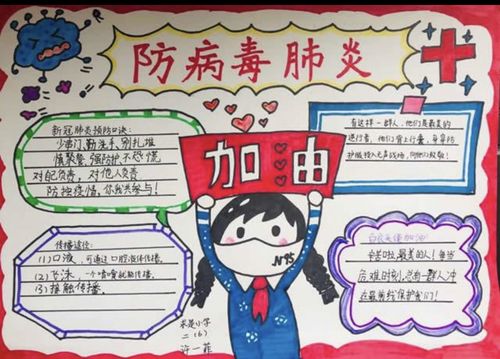 防病毒肺炎
新冠肺炎预防口诀:
少串门,勤洗手,别扎堆
慎聚餐,强防护,不恐慌
对己负责,对他人负责
防控疫情,你我共参与!
有这样一群人,他们是最美的
逆行者,他们背上行囊,身穿防
护服投入无声战场,向他们致敬!
加油
传播途径:
(1)口液,可通过口腔液体传播.
(2)飞沫,一个喷嚏就能传播.
(3)接触传播.
N95
白衣天使加油
辛苦啦,最美的人!每当
危难时刻,总有一群人冲
在最前线保护我们!
求是小学
二(6)
许一菲